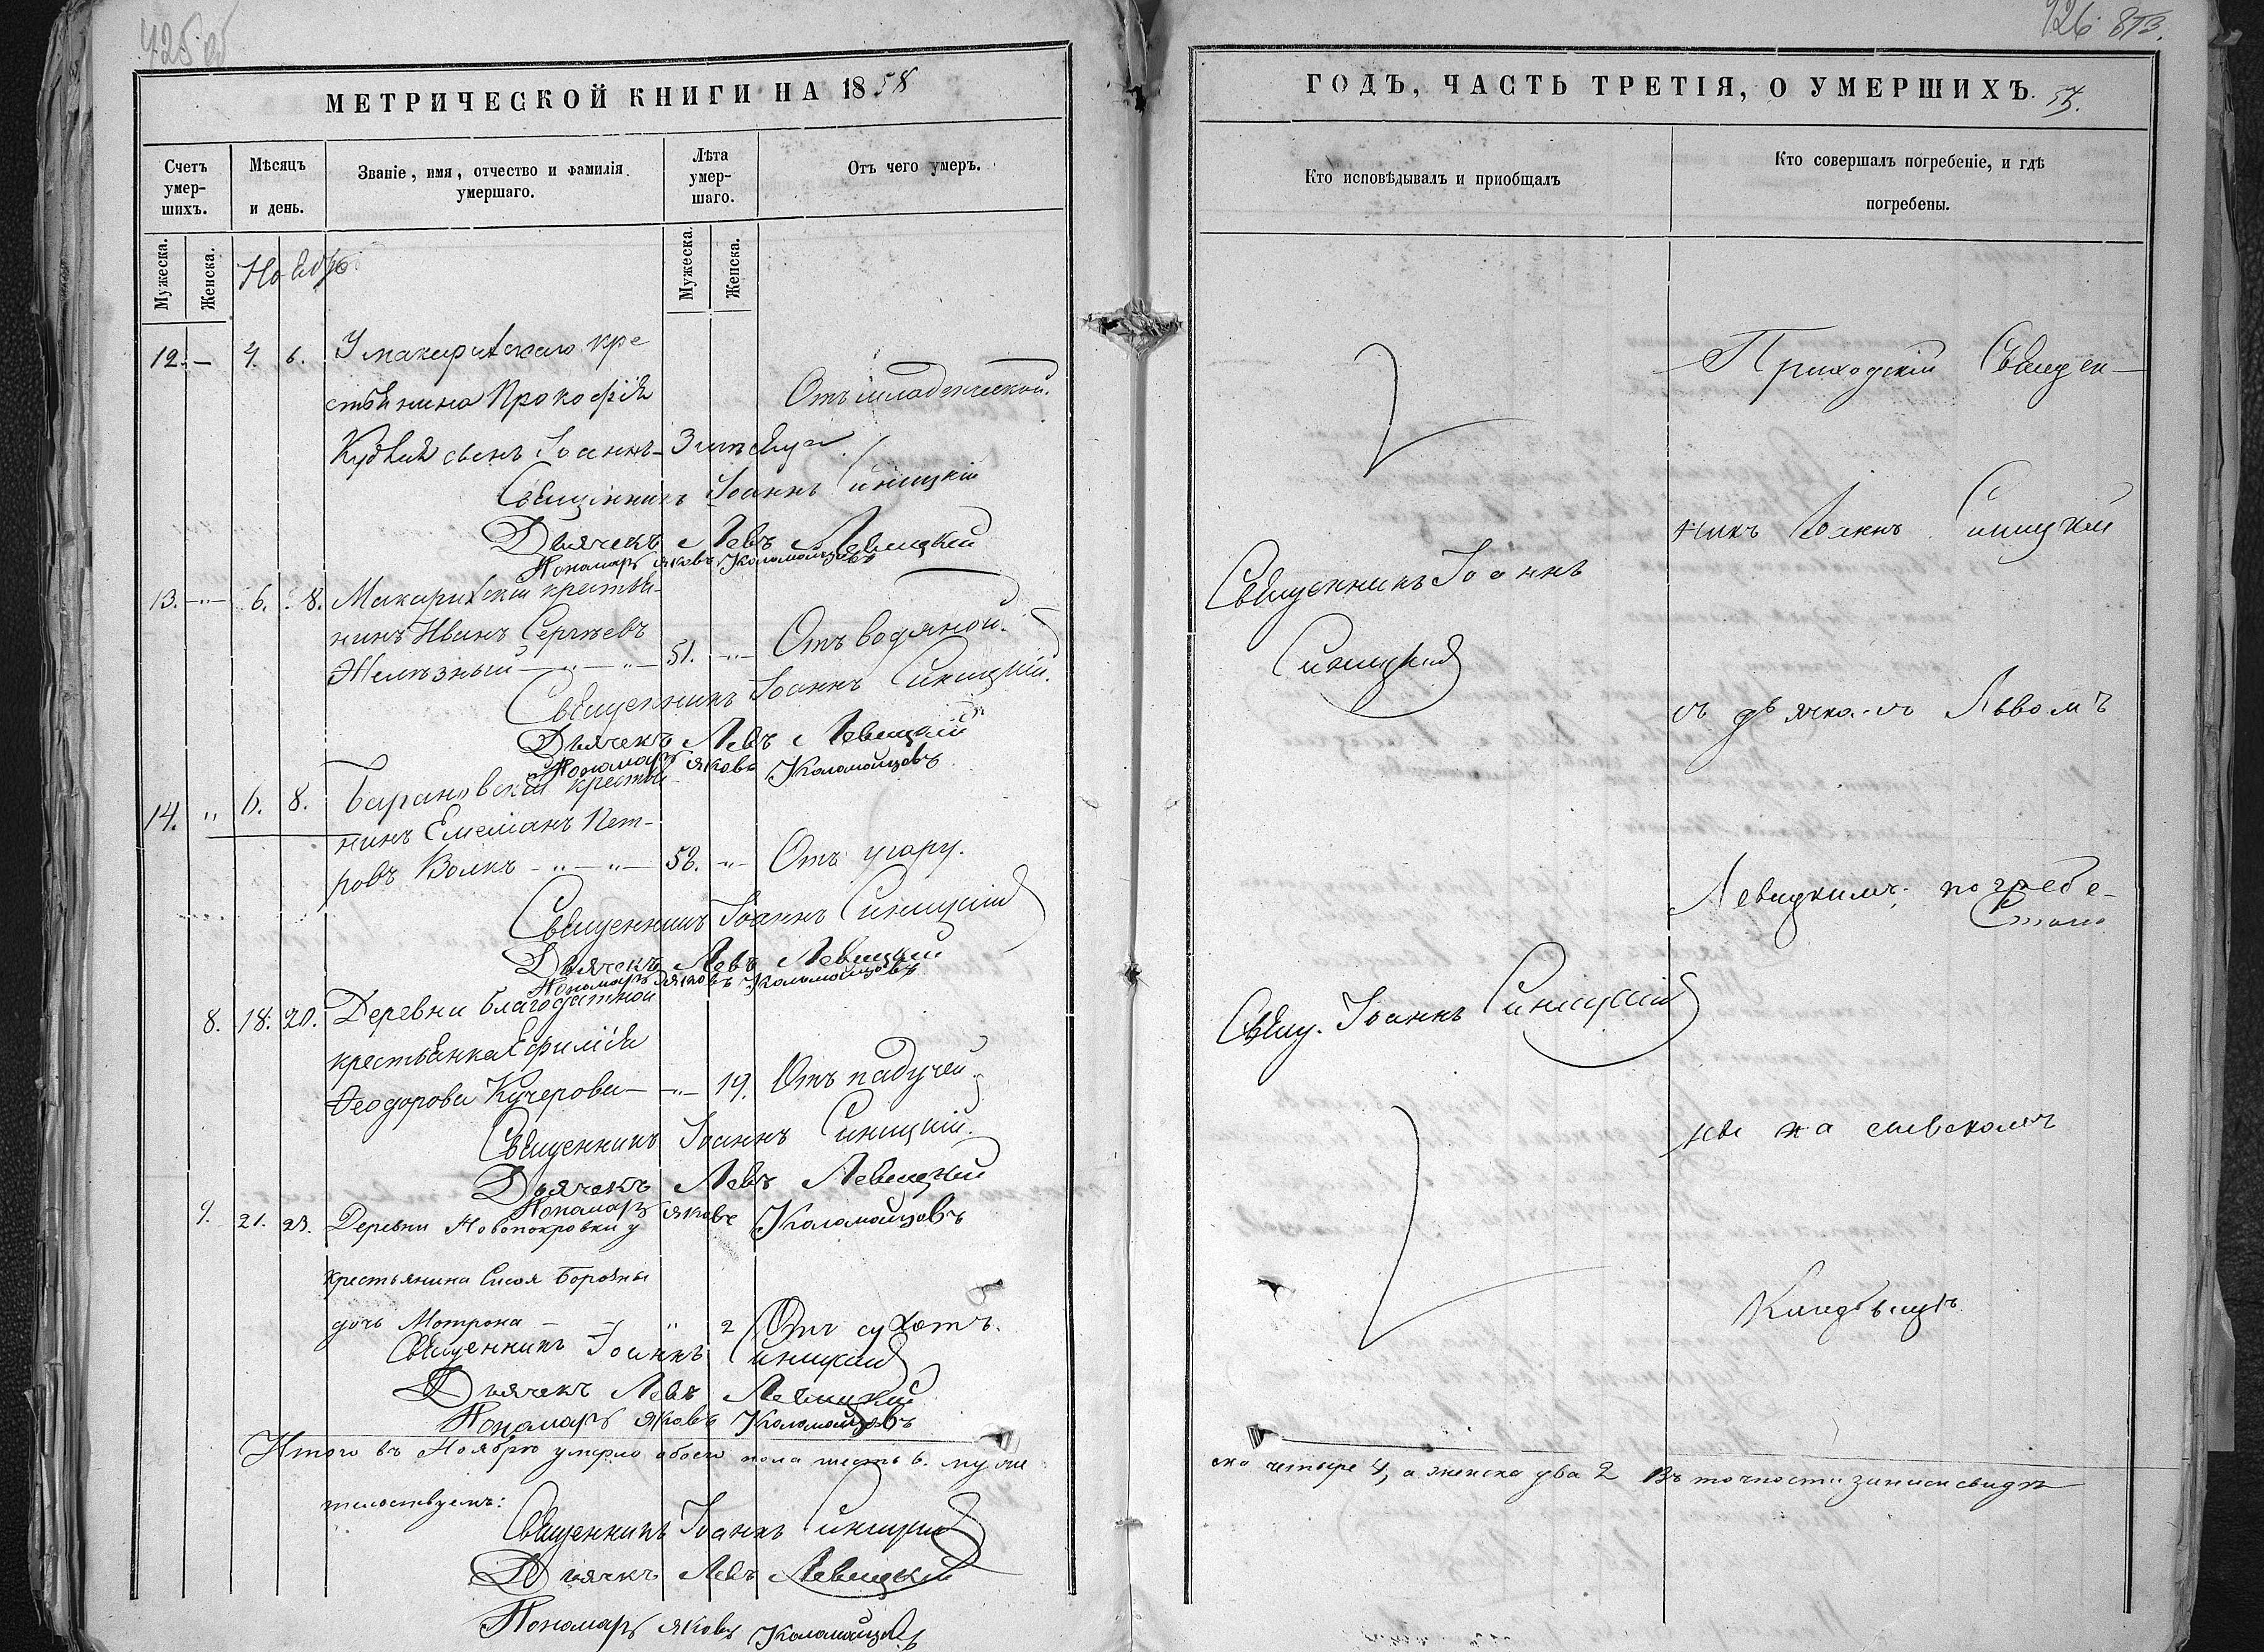 425 об
МЕТРИЧЕСКОЙ КНИГИ НА 1858
Счетъ умер-шихъ.
Мѣсяцъ и день.
Званіе, имя, отчество и фамилія умершаго.
Лѣта умер-шаго.
Отъ чего умеръ.
Мужеска.
Женска.
Ноября
Мужеска.
Женска.
12. — 4. 6. У макарихскаго кре
стьянина Прокофія Отъ младенческой.
сынъ Іоаннъ
Священникъ Іоаннъ Синицкій
Дьячекъ Левъ Левицкій
Пономарь Яковъ Коломойцовъ
13. —"— 6. 8. Макарихскій крестья-
нинъ Иванъ Сергѣевъ
Желѣзный —"—"— 51. —"— Отъ водяной.
Священникъ Іоаннъ Синицкій.
Дьячекъ Левъ Левицкій
Пономарь Яковъ Коломойцовъ
14. " 6. 8. Барановскій крестья-
нинъ Емеліанъ Пет-
ровъ Волкъ —"—"— 52. —"— Отъ угару.
Священникъ Іоаннъ Синицкій
Дьячекъ Левъ Левицкій
Пономарь Яковъ Коломойцовъ
8. 18. 20. Деревни Благодатной
крестьянка Ефимія
Ѳеодорова Кучерова — —"— 19. Отъ падучей.
Священникъ Іоаннъ Синицкій.
Дьячекъ Левъ Левицкій
Пономарь Яковъ Коломойцовъ
9. 21. 23. Деревни Новопокровки у
крестьянина Сисоя
дочь Мотрона — — " 2 Отъ сухотъ.
Священникъ Іоаннъ Синицкій
Дьячекъ Левъ Левицкій
Пономарь Яковъ Коломойцовъ
Итого въ Ноябрѣ умерло обоего пола шесть 6. муже
тельствуемъ:
Священникъ Іоаннъ Синицкій
Дьячекъ Левъ Левицкій
Пономарь Яковъ Коломойцовъ
426
ГОДЪ, ЧАСТЬ ТРЕТІЯ, О УМЕРШИХЪ.
Кто исповѣдывалъ и приобщалъ
Кто совершалъ погребеніе, и гдѣ погребены.
Приходскій Священ-
никъ Іоаннъ Синицкій
Священникъ Іоаннъ
Синицкій
съ дьячкомъ Львомъ
Левицкимъ; погребе-
Свящ. Іоаннъ Синицкій
ны на сельскомъ
Кладбищѣ
ска четыре 4, а женска два 2 Въ точности записи свидѣ